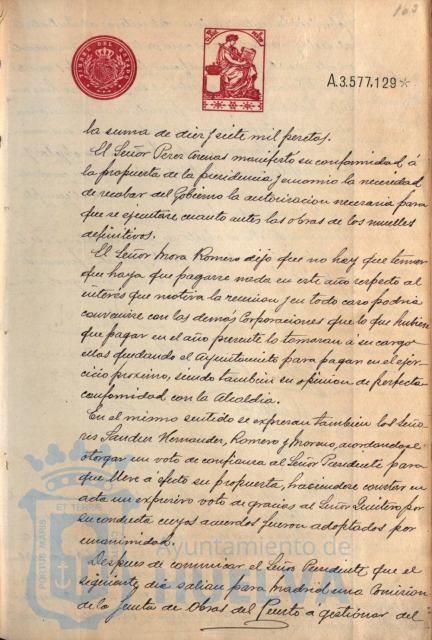 163
TIMBRE DEL ESTADO
A.3.577,129*
la suma de diez y siete mil pesetas.
El Señor Perez Arenas manifestó su conformidad, á
la propuesta de la presidencia y encomio la necesidad
de recabar del Gobierno la autorizacion necesaria para
que se ejecuten cuanto antes las obras de los muelles
definitivos.
El Señor Mora Romero dijo que no hay que temer
que haya que pagarse nada en este año respecto al
interés que motiva la reunion y en todo caso podria
convenirse con las demás Corporaciones que lo que hubiera
que pagar en el año presente lo tomaran á su cargo
ellas quedando el Ayuntamiento para pagar en el ejer-
cicio proximo, siendo tambien su opinion de perfecta
conformidad con la Alcaldia.
En el mismo sentido se expresan tambien los Seño-
res Sanchez Hernandez, Romero y Moreno, acordandose
otorgar un voto de confianza al Señor Presidente para
que lleve á efecto su propuesta, haciendose constar en
acta un expresivo voto de gracias al Señor Quintero por
su conducta cuyos acuerdos fueron adoptados por
unanimidad.
Despues de comunicar el Señor Presidente, que el
siguiente dia salian para Madrid una Comision
de la Junta de Obras del Puerto á gestionar del
PORTUS MARIS ET TERRAE
Ayuntamiento de
HUELVA